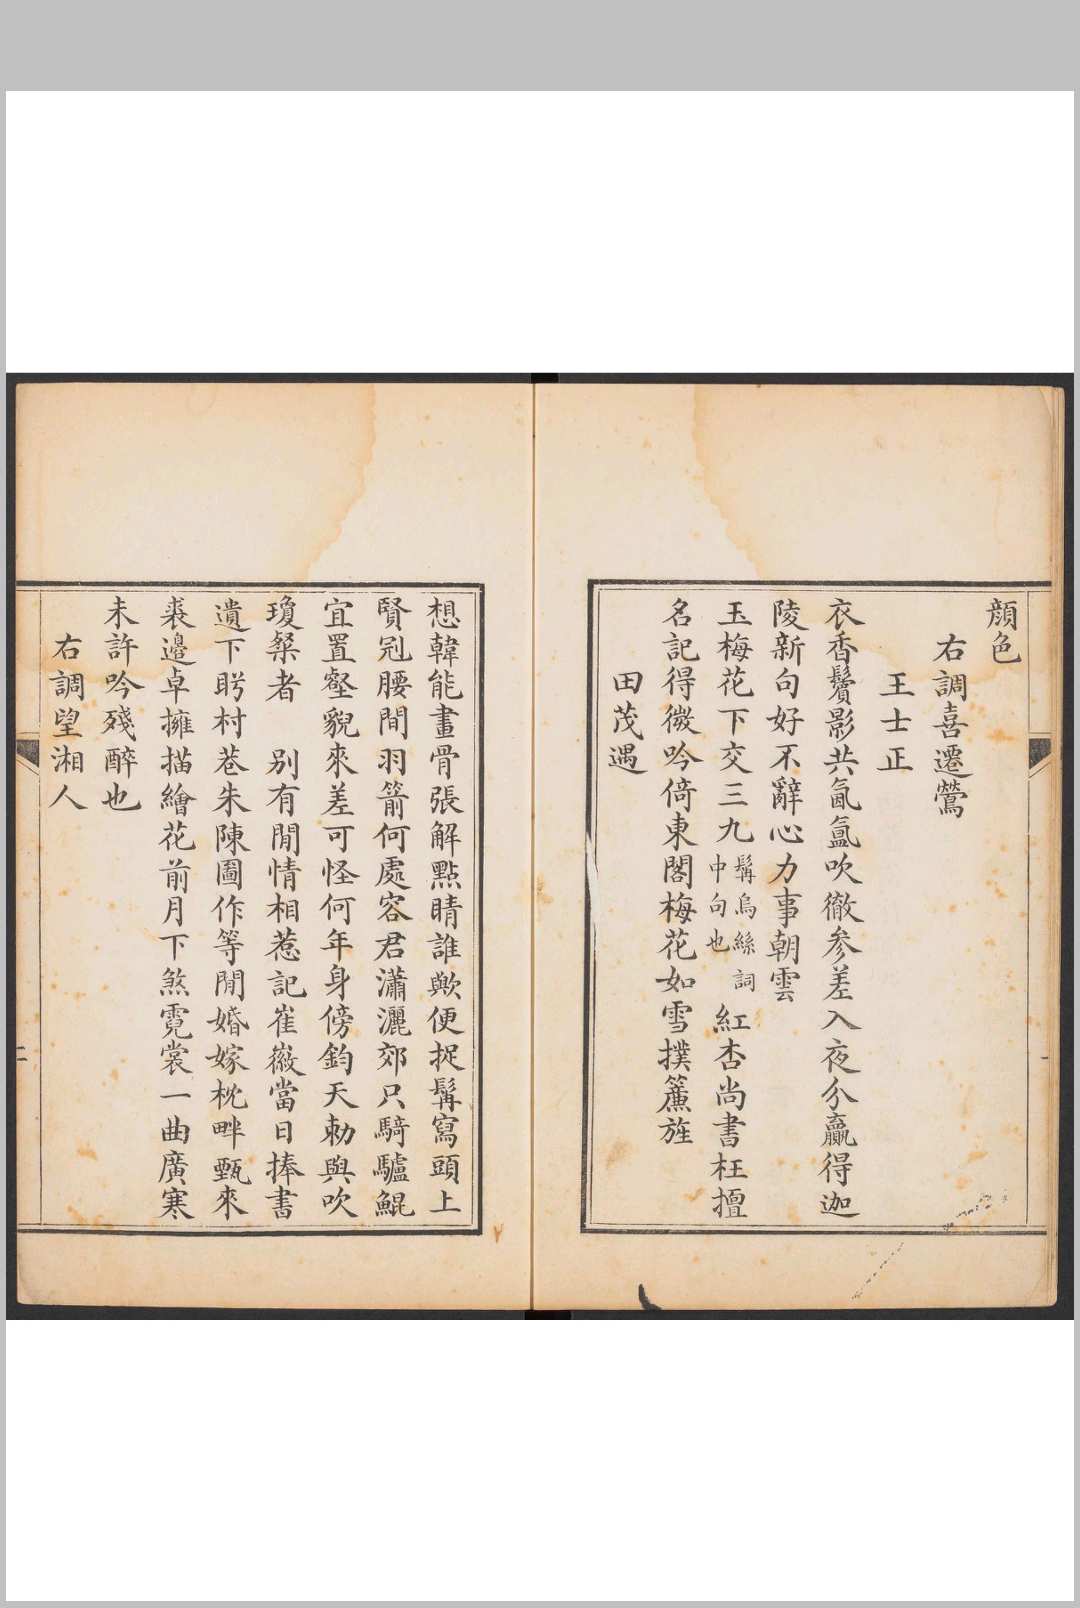 顏色
右調喜遷鶯
王士正
衣香鬢影共氤氳吹徹參差入夜分贏得迦
陵新句好不辭心力事朝雲
玉梅花下交三九髯烏絲詞中句也紅杏尚書枉擅
名記得微吟倚東閣梅花如雪撲簾旌
田茂遇
想韓能畫骨張解點睛誰歟便捉髯寫頭上
賢冠腰間羽箭何處容君瀟灑郊只騎驢鯤
宜置壑貌來差可怪何年身傍鈞天勅與吹
瓊粲者 別有閒情相惹記崔徽當日捧書
遺下盻村巷朱陳圖作等閒婚嫁枕畔甄來
裘邊卓擁描繪花前月下煞霓裳一曲廣寒
未許吟殘醉也
右調望湘人
二